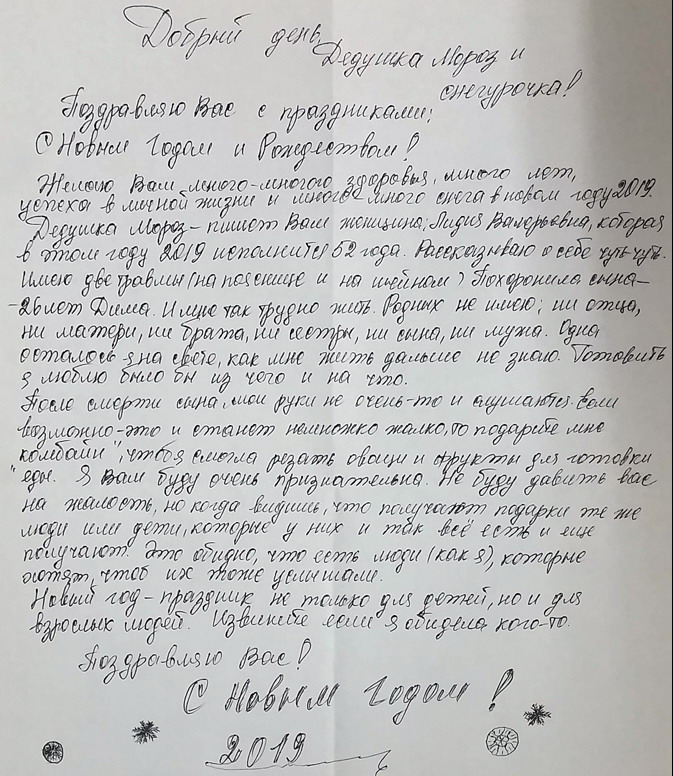 Добрый день,
Дедушка Мороз и
снегурочка!
Поздравляю Вас с праздниками;
С Новым Годом и Рождеством!
Желаю Вам много-много здоровья, много лет,
успеха в личной жизни и много-много снега в новом году 2019.
Дедушка Мороз - пишет Вам женщина; Лидия Валерьевна, которая
в этом году 2019 исполнится 52 года. Рассказываю о себе чуть-чуть.
Имею две травмы (на пояснице и на шейном) Похоронила сына-
-26 лет Дима. И мне так трудно жить. Родных не имею; ни отца,
ни матери, ни брата, ни сестры, ни сына, ни мужа. Одна
осталось я на свете, как мне жить дальше не знаю. Готовить
я люблю было бы из чего и на что.
После смерти сына, мои руки не очень-то и слушаются. Если
возможно-это и станет немножко жалко, то подарите мне
"комбайн", чтоб я смогла резать овощи и фрукты для готовки
еды. Я Вам буду очень признательна. Не буду давить вас
на жалость, но когда видишь, что получают подарки те же
люди или дети, которые у них и так всё есть и еще
получают. Это обидно, что есть люди (как я), которые
хотят, чтоб их тоже услышали.
Новый год - праздник не только для детей, но и для
взрослых людей. Извините если я обидела кого-то.
Поздравляю Вас!
С Новым Годом!
2019